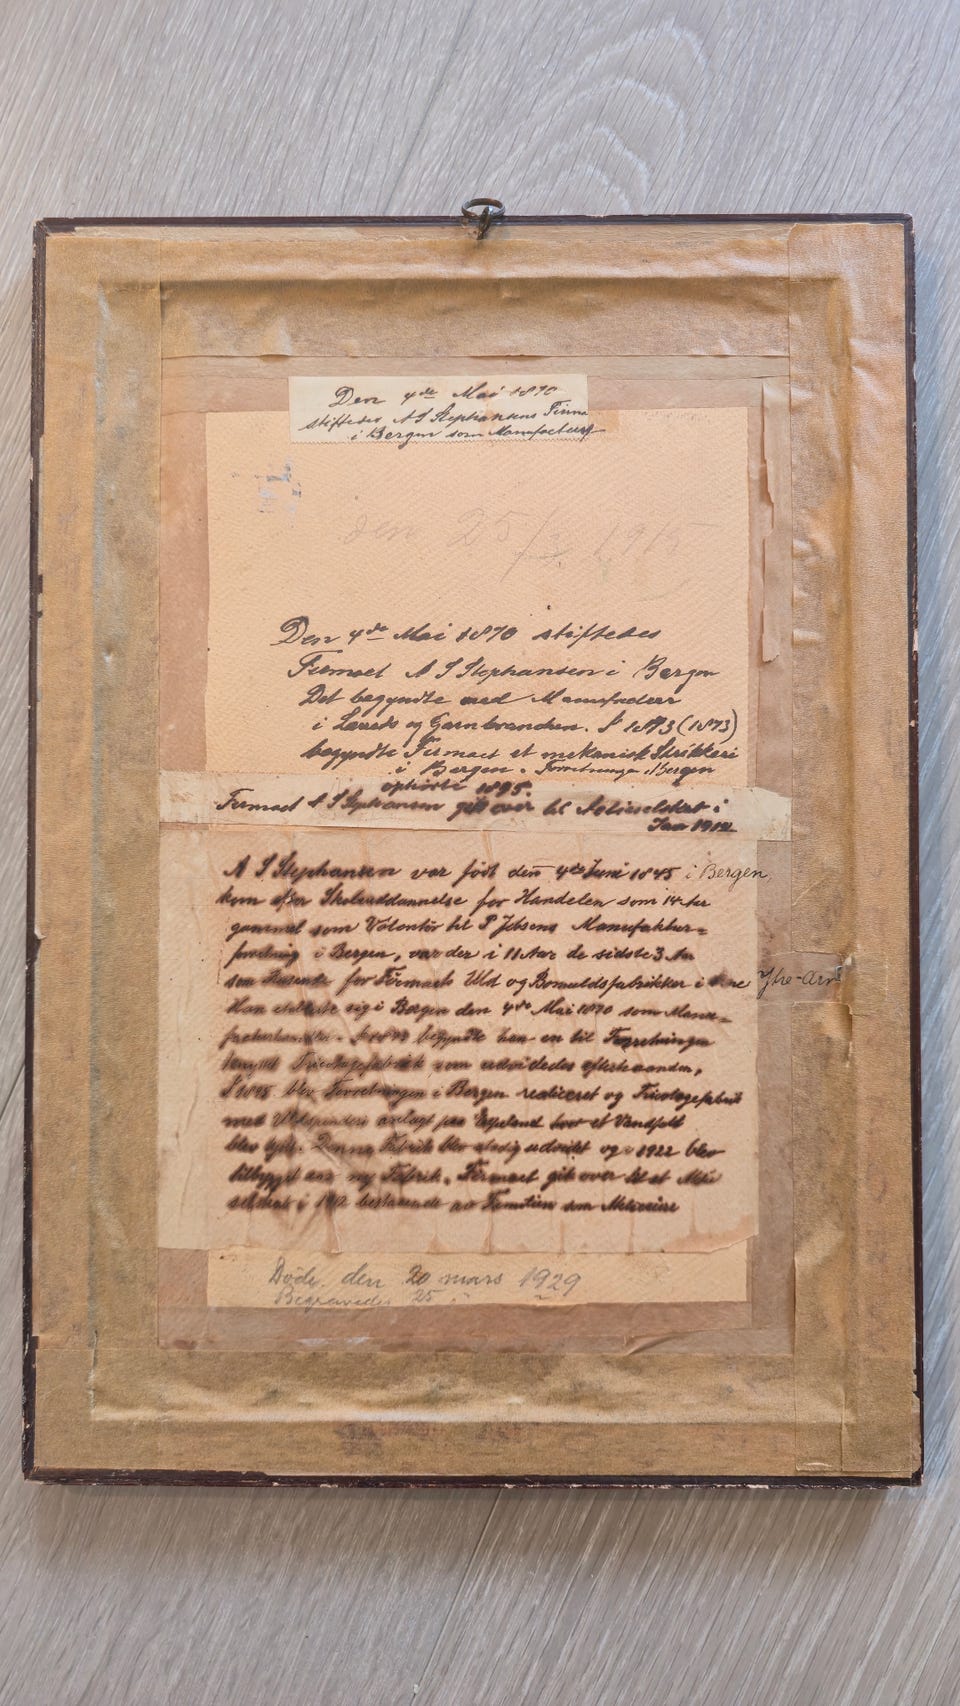 Den 4de Mai 1870
stiftedes A S Stephansens Firma
i Bergen som Manufactur
den 25/3 1915
Den 4de Mai 1870 stiftedes
Firmaet A S Stephansen i Bergen
Det begyndte med Manufactur
i Læreds og Garnbranchen. I 1873 (1873)
begyndte Firmaet et mekanisk Strikkeri
i Bergen. Forretningen i Bergen
ophørte 1895.
Firmaet A S Stephansen gik over til Actieselskab i
Jan 1912
A S Stephansen var født den 4de Juni 1845 i Bergen,
kom efter Skoleuddannelse for Handelen som 14 Aar
gammel som Volontör til P Jebsens Manufaktur-
forretning i Bergen, var der i 11 Aar de sidste 3 Aar
som Reisende for Firmaets Uld og Bomuldsfabrikker i Arne Ytre-Arne
Han etablerte sig i Bergen den 4de Mai 1870 som Manu-
begyndte han en til Forretningen
Tricotagefabrik som udvidedes efterhaanden,
I 1895 blev Forretningen i Bergen realiseret og Tricotagefabrik
med Uldspinderi anlagt paa Espeland hvor et Vandfald
blev kjøbt. Denne Fabrik blev stadig udvidet og i 1922 blev
tilbygget en ny Fabrik. Firmaet gik over til et Aktie
selskab i 1912 bestaaende av Familien som Aktieeiere
Døde den 20 mars 1929
Begravedes 25 "